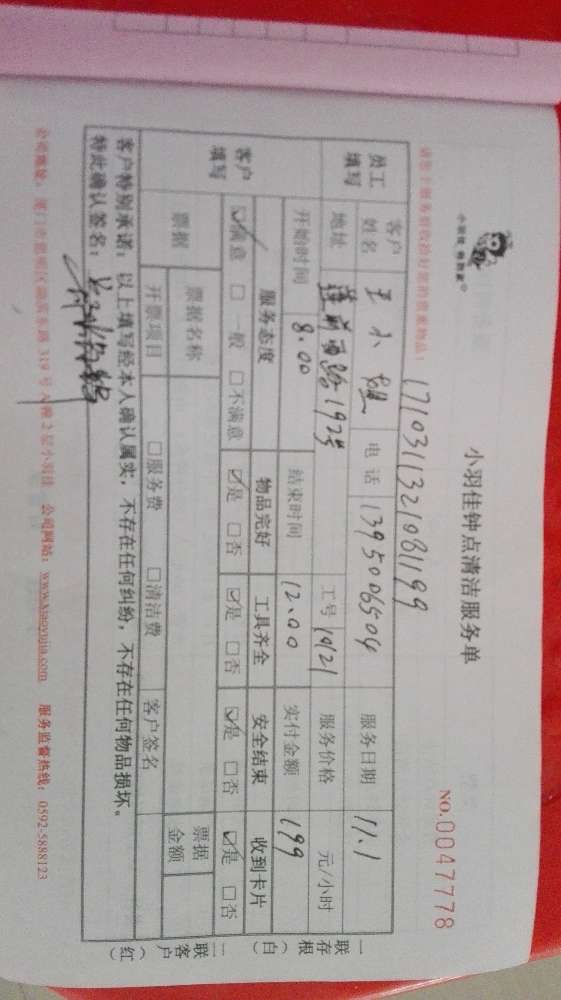 小羽佳钟点清洁服务单
NO.0047778
小羽佳 修到家
请您于服务前收拾好您的贵重物品!
171031132108199
员工填写 客户姓名 王小姐 电话 1395006504 服务日期 11.1
地址 莲前西路192号 工号 1021 服务价格 元/小时
客户填写 开始时间 8.00 结束时间 12.00 实付金额 199
服务态度 物品完好 工具齐全 安全结束 收到卡片
☑满意 □一般 □不满意 ☑是 □否 ☑是 □否 ☑是 □否 ☑是 □否
票据 票据名称 票据金额
开票项目 □服务费 □清洁费 客户签名
客户特别承诺:以上填写经本人确认属实,不存在任何纠纷,不存在任何物品损坏。
特此确认签名:
公司网站:www.xiaoyujia.com 服务监督热线:0592-5888123
一联存根(白)
二联客户(红)